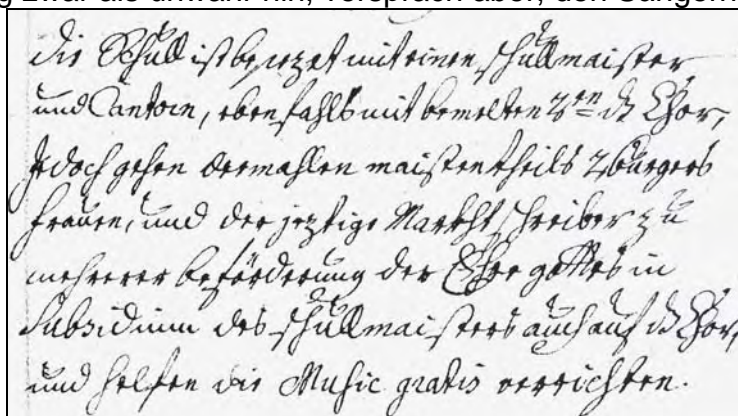 g zwar als unwahr hin, versprach aber, den Sängern
die Schull ist besezet mit einem schullmaister
und Cantorn, ebenfahls mit bemelten 2en ds Chor,
Jedoch gehen dermahlen maistentheils 2 burgers
frauen, und der jeztige Markht schreiber zu
mehrerer beförderung der Ehre gottes in
Subsidium des schullmaisters auch auf ds Chor,
und helfen die Music gratis verrichten.